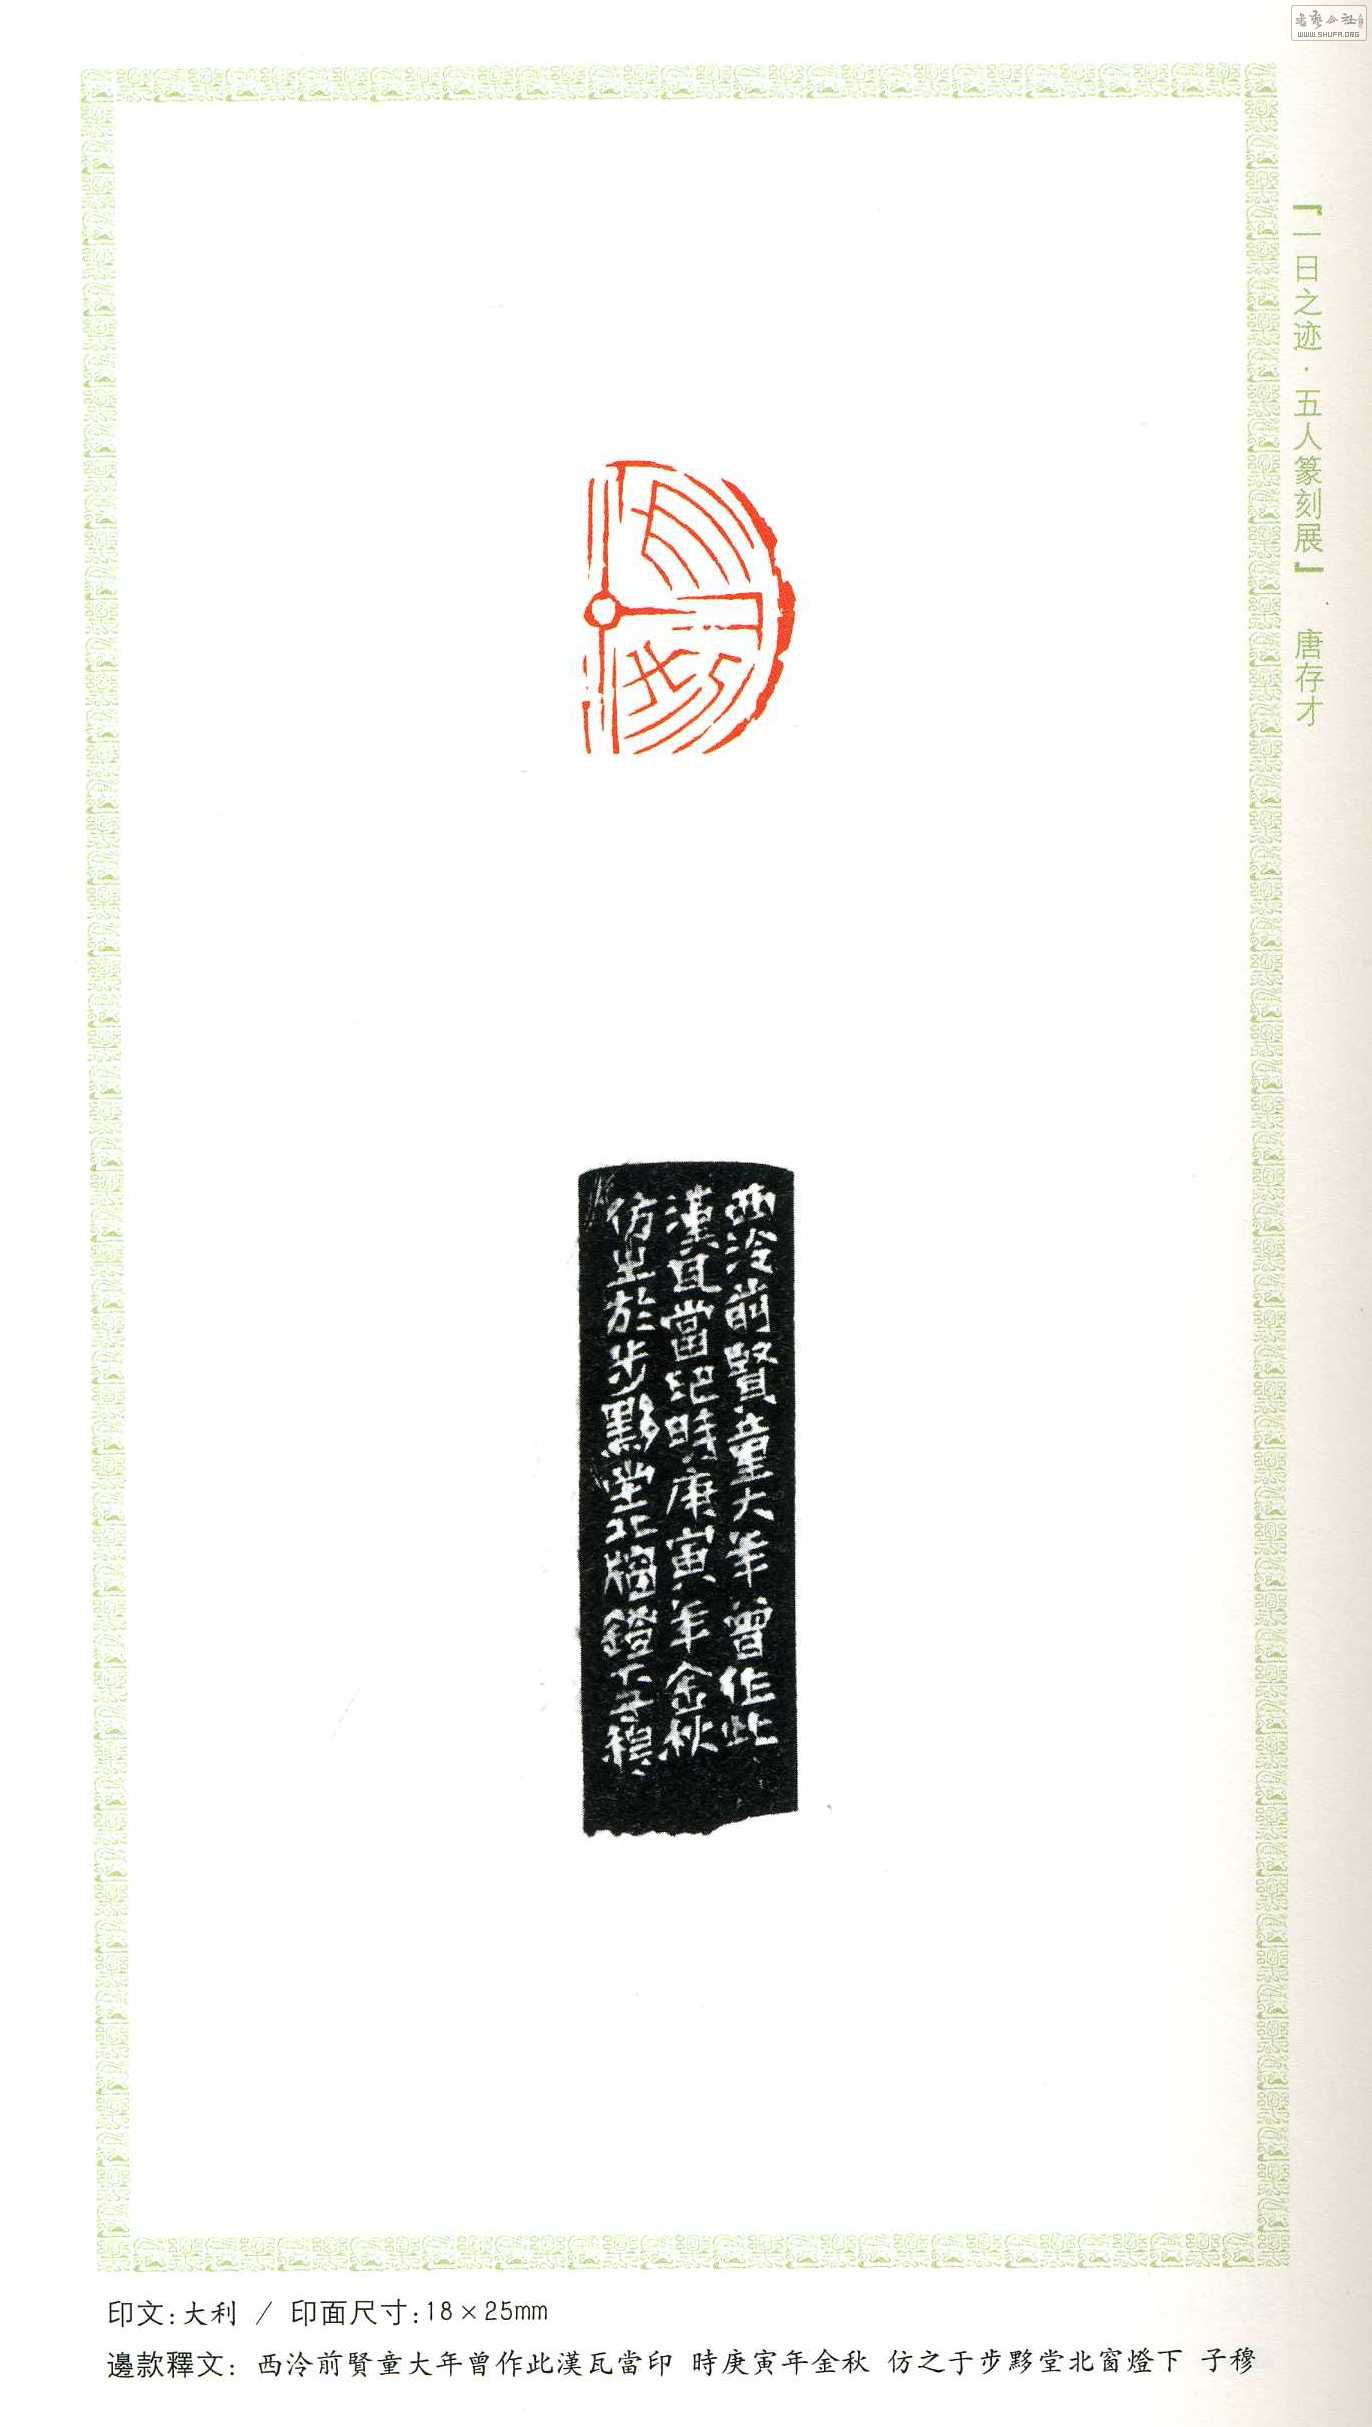 書藝公社
WWW.SHUFA.ORG
『一日之迹·五人篆刻展』 唐存才
大利
西泠前賢童大年曾作此
漢瓦當印時庚寅年金秋
仿之於步黟堂北窗鐙下子穆
印文:大利 / 印面尺寸:18×25mm
邊款釋文: 西泠前賢童大年曾作此漢瓦當印 時庚寅年金秋 仿之于步黟堂北窗燈下 子穆